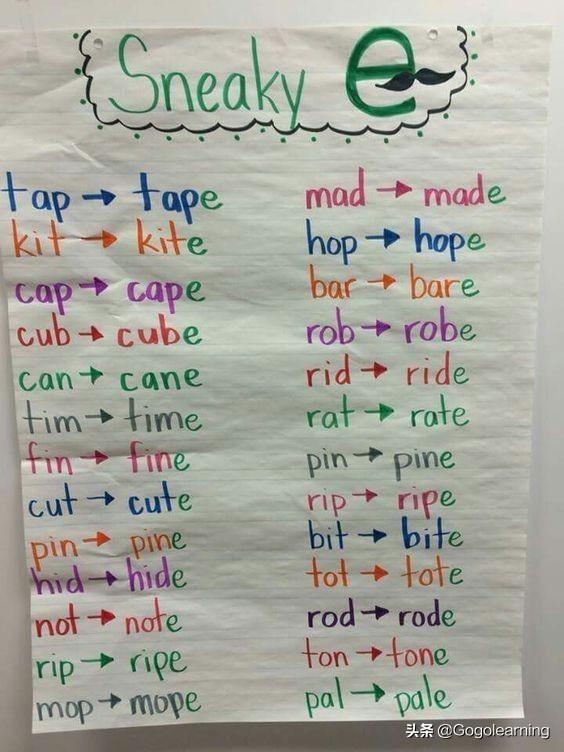 Sneaky e
tap → tape
kit → kite
cap → cape
cub → cube
can → cane
tim → time
fin → fine
cut → cute
pin → pine
hid → hide
not → note
rip → ripe
mop → mope
mad → made
hop → hope
bar → bare
rob → robe
rid → ride
rat → rate
pin → pine
rip → ripe
bit → bite
tot → tote
rod → rode
ton → tone
pal → pale
头条 @Gogolearning